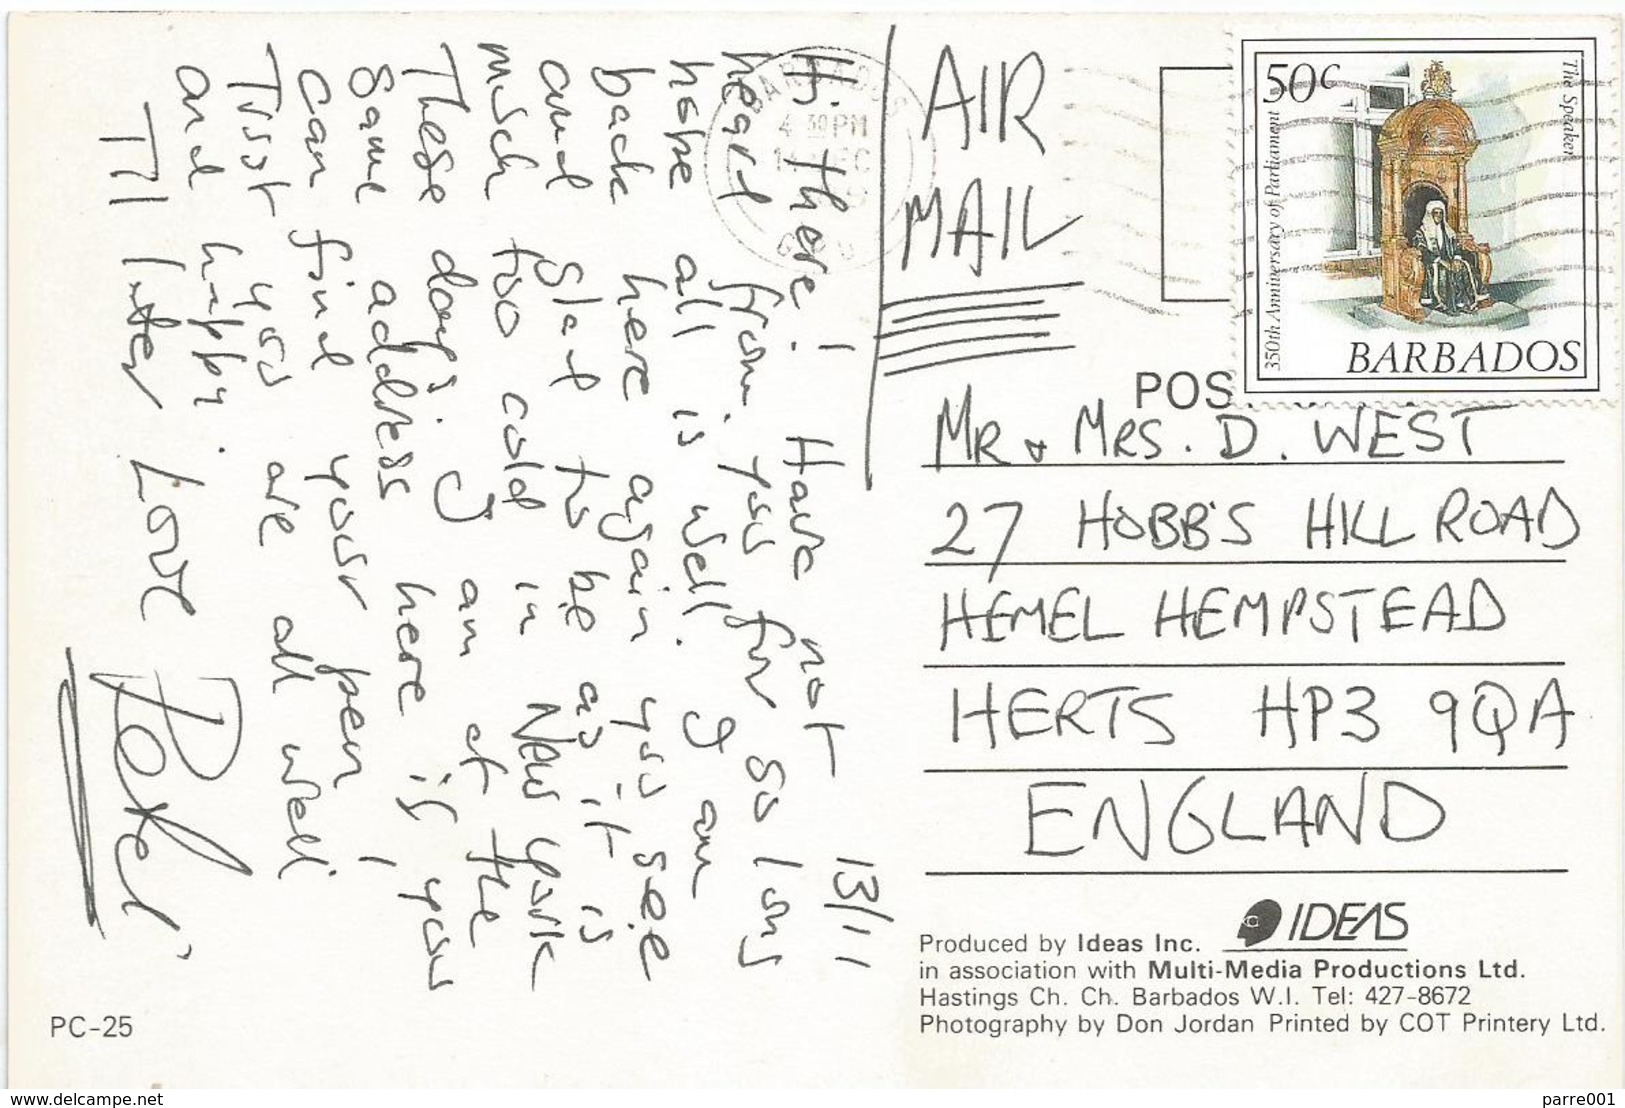 13/11
Hi there! Have not
heard from you for so long
hope all is well. I am
back here again you see
and glad to be as it is
much too cold in New York
These days. I am at the
same address here if you
can find your pen!
Trust you are all well
and happy.
Til later Love Peter
AIR
MAIL
50c
The Speaker
350th Anniversary of Parliament
BARBADOS
BARBADOS
4 30 PM
DEC
POS
MR & MRS. D. WEST
27 HOBB'S HILL ROAD
HEMEL HEMPSTEAD
HERTS HP3 9QA
ENGLAND
IDEAS
Produced by Ideas Inc.
in association with Multi-Media Productions Ltd.
Hastings Ch. Ch. Barbados W.I. Tel: 427-8672
Photography by Don Jordan Printed by COT Printery Ltd.
PC-25
delcampe.net
parre001